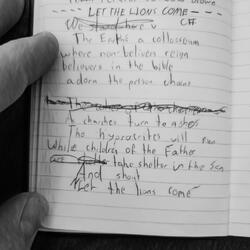 - - LET THE LIONS COME - -
We stand here in
The Earths a collosseum
where non-belivers reign
believers in the bible
adorn the person chains
if churches turn to ashes
The hypocrites will run
While children of the Father
take shelter in the Son
And shout
"Let the lions come"